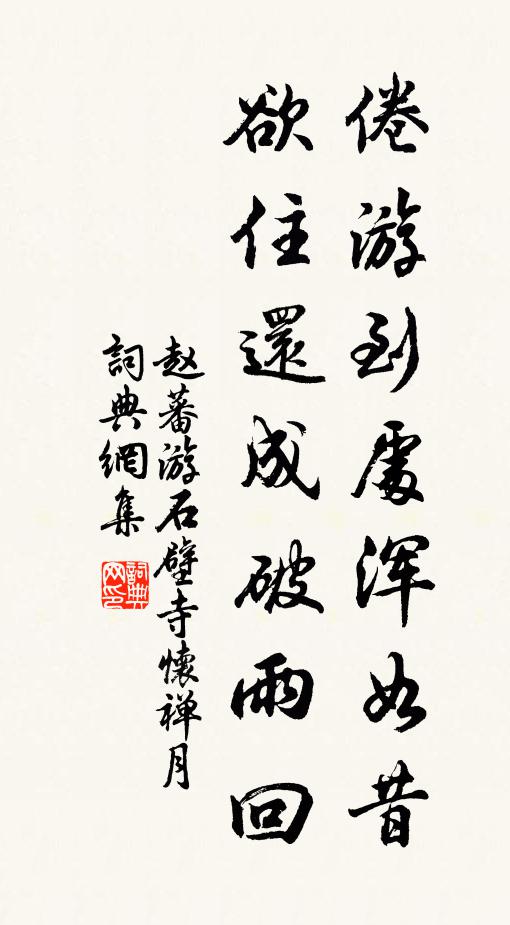 倦游到處渾如昔
欲住還成破雨回
赵蕃游石壁寺懷禅月
詞典網集
詞典网印